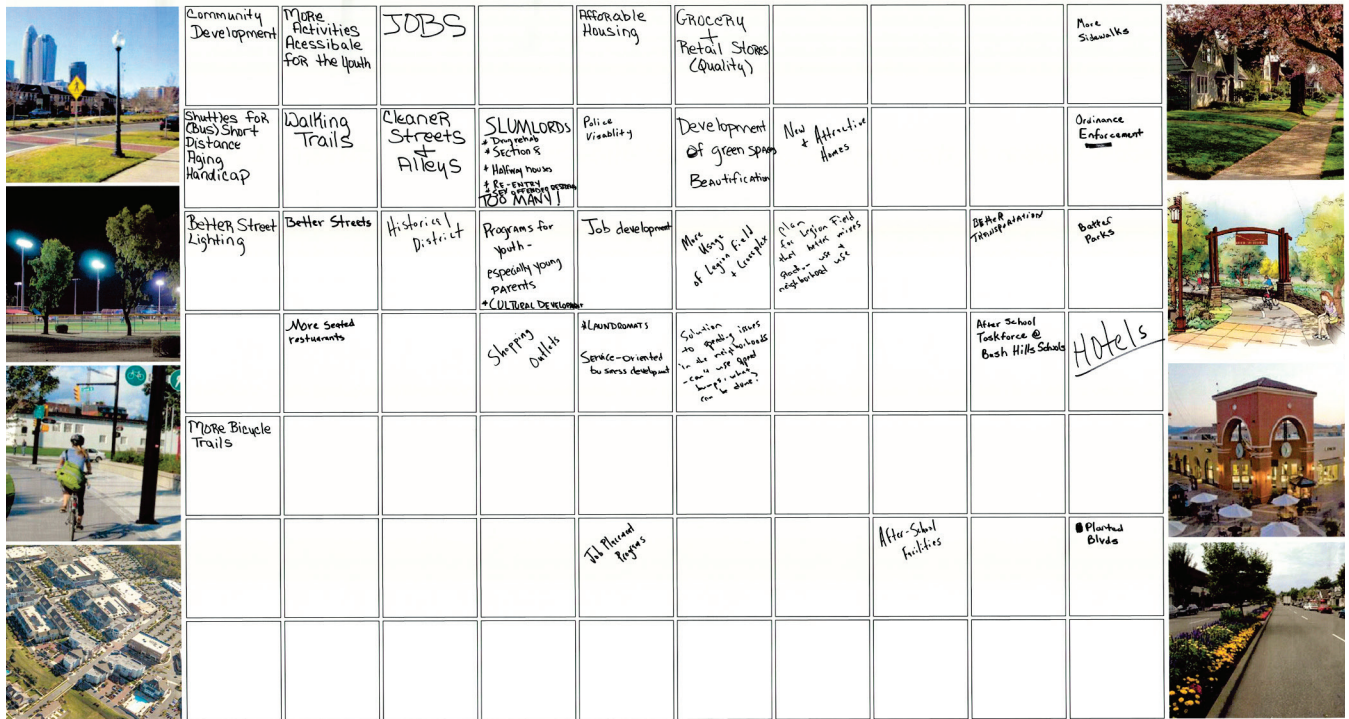 Community
Development
More
Activities
Acessibale
for the Youth
JOBS
Afforable
Housing
Grocery
+
Retail Stores
(Quality)
More
Sidewalks
Shuttles for
(Bus) Short
Distance
Aging
Handicap
Walking
Trails
Cleaner
Streets
+
Alleys
SLUMLORDS
* Drug rehab
* Section 8
* Halfway houses
* RE-ENTRY
* SEX OFFENDER
TOO MANY!
Police
Visablity
Development
of green spaces
Beautification
New
+ Attractive
Homes
Ordinance
Enforcement
Better Street
Lighting
Better Streets
Historical
District
Programs for
Youth -
especially young
parents
* CULTURAL DEVELOPMENT
Job development
More
Usage
of Legion Field
+ Crossplex
Plan
for Legion Field
that better mixes
use &
neighborhood use
BETTER
TRANSPORTATION
Better
Parks
More seated
restuarants
Shopping
Outlets
* LAUNDROMATS
Service-oriented
business development
Solution
to speeding issues
in the neighborhoods
- can't use speed
bumps, what
can be done?
After School
Taskforce @
Bush Hills Schools
Hotels
More Bicycle
Trails
Job Placement
Programs
After-School
Facilities
Planted
Blvds